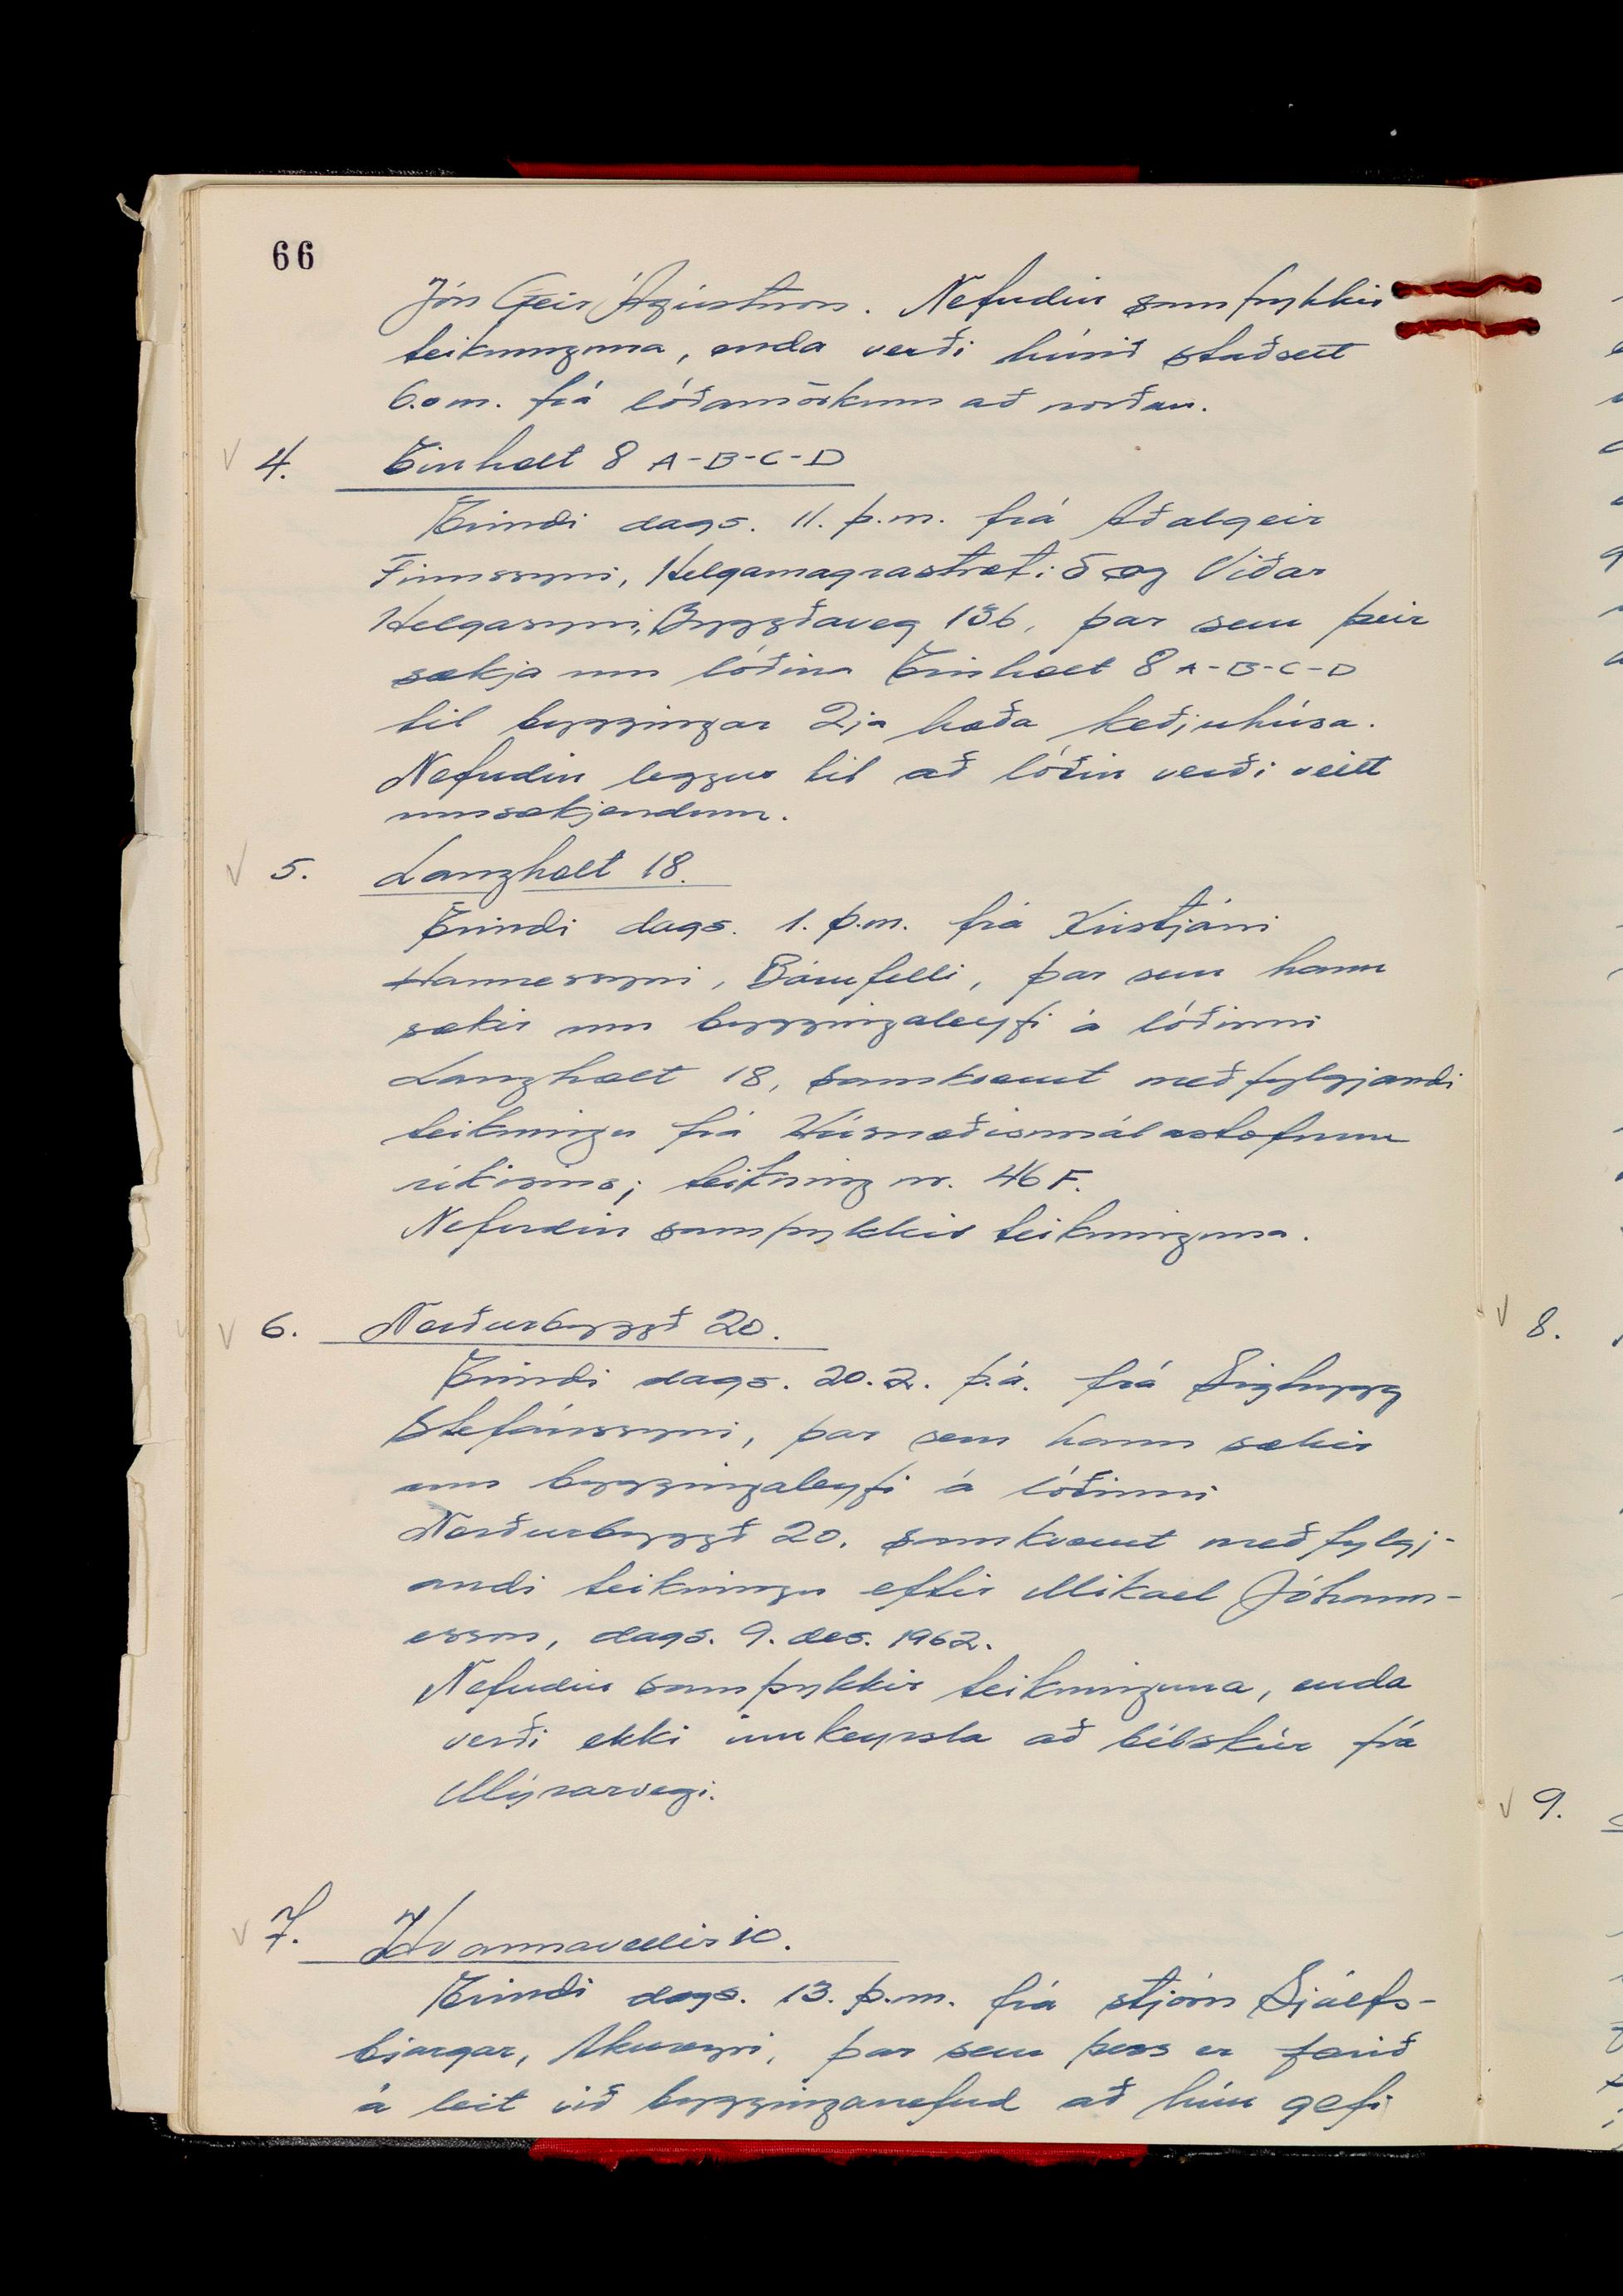 66
Jón Geir Ágústsson. Nefndin samþykkir
teikninguna, enda verði húsið staðsett
6.0 m. frá lóðamörkum að norðan.
4. Einholt 8 A-B-C-D
Erindi dags. 11. þ.m. frá Aðalgeir
Finnssyni, Helgamagrastræti 5 og Viðar
Helgasyni, Byggðaveg 136, þar sem þeir
sækja um lóðina Einholt 8 A-B-C-D
til byggingar 2ja hæða keðjuhúsa.
Nefndin leggur til að lóðin verði veitt
umsækjendum.
5. Langholt 18.
Erindi dags. 1. þ.m. frá Kristjáni
Hannessyni, Búrufelli, þar sem hann
sækir um byggingaleyfi á lóðinni
Langholt 18, samkvæmt meðfylgjandi
teikningu frá Húsnæðismálastofnun
ríkisins; teikning nr. 46 F.
Nefndin samþykkir teikninguna.
6. Norðurbyggð 20.
Erindi dags. 20.2. þ.á. frá Sigtrygg
Stefánssyni, þar sem hann sækir
um byggingaleyfi á lóðinni
Norðurbyggð 20, samkvæmt meðfylgj-
andi teikningu eftir Mikael Jóhann-
esson, dags. 9. des. 1962.
Nefndin samþykkir teikninguna, enda
verði ekki innkeyrsla að bílskúr frá
Mýrarvegi.
7. Hvannavellir 10.
Erindi dags. 13. þ.m. frá stjórn Sjálfs-
bjargar, Akureyri, þar sem þess er farið
á leit við bygginganefnd að hún gefi
8.
9.